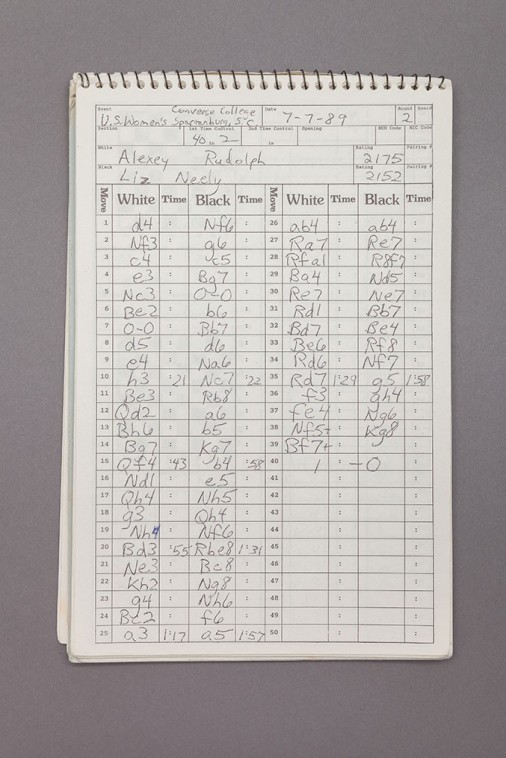 Event Converse College Date Round Board
U.S. Women's Spartanburg, S.C. 7-7-89 2
Section 1st Time Control 2nd Time Control Opening ECO Code NIC Code
40 in 2 in
White Alexey Rudolph Rating 2175 Pairing #
Black Liz Neely Rating 2152 Pairing #
Move White Time Black Time Move White Time Black Time
1 d4 : Nf6 : 26 ab4 : ab4 :
2 Nf3 : g6 : 27 Ra7 : Re7 :
3 c4 : c5 : 28 Rfa1 : R8f7 :
4 e3 : Bg7 : 29 Ba4 : Nd5 :
5 Nc3 : O-O : 30 Re7 : Ne7 :
6 Be2 : b6 : 31 Rd1 : Bb7 :
7 O-O : Bb7 : 32 Bd7 : Be4 :
8 d5 : d6 : 33 Be6 : Rf8 :
9 e4 : Na6 : 34 Rd6 : Nf7 :
10 h3 :21 Nc7 :22 35 Rd7 1:29 g5 1:58
11 Be3 : Rb8 : 36 f3 : gh4 :
12 Qd2 : a6 : 37 fe4 : Ng6 :
13 Bh6 : b5 : 38 Nf5+ : Kg8 :
14 Bg7 : Kg7 : 39 Bf7+ : :
15 Qf4 :43 b4 :58 40 1 : -0 :
16 Nd1 : e5 : 41 : :
17 Qh4 : Nh5 : 42 : :
18 g3 : Qh4 : 43 : :
19 Nh4 : Nf6 : 44 : :
20 Bd3 :55 Rbe8 1:31 45 : :
21 Ne3 : Bc8 : 46 : :
22 Kh2 : Ng8 : 47 : :
23 g4 : Nh6 : 48 : :
24 Bc2 : f6 : 49 : :
25 a3 1:17 a5 1:57 50 : :